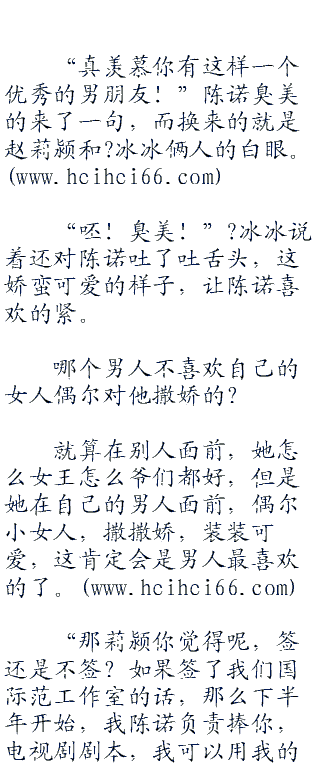 “真羡慕你有这样一个
优秀的男朋友！”陈诺臭美
的来了一句，而换来的就是
赵莉颍和?冰冰俩人的白眼。
(www.hcihci66.com)
“呸！臭美！”?冰冰说
着还对陈诺吐了吐舌头，这
娇蛮可爱的样子，让陈诺喜
欢的紧。
哪个男人不喜欢自己的
女人偶尔对他撒娇的？
就算在别人面前，她怎
么女王怎么爷们都好，但是
她在自己的男人面前，偶尔
小女人，撒撒娇，装装可
爱，这肯定会是男人最喜欢
的了。(www.hcihci66.com)
“那莉颍你觉得呢，签
还是不签？如果签了我们国
际范工作室的话，那么下半
年开始，我陈诺负责捧你，
电视剧剧本，我可以用我的